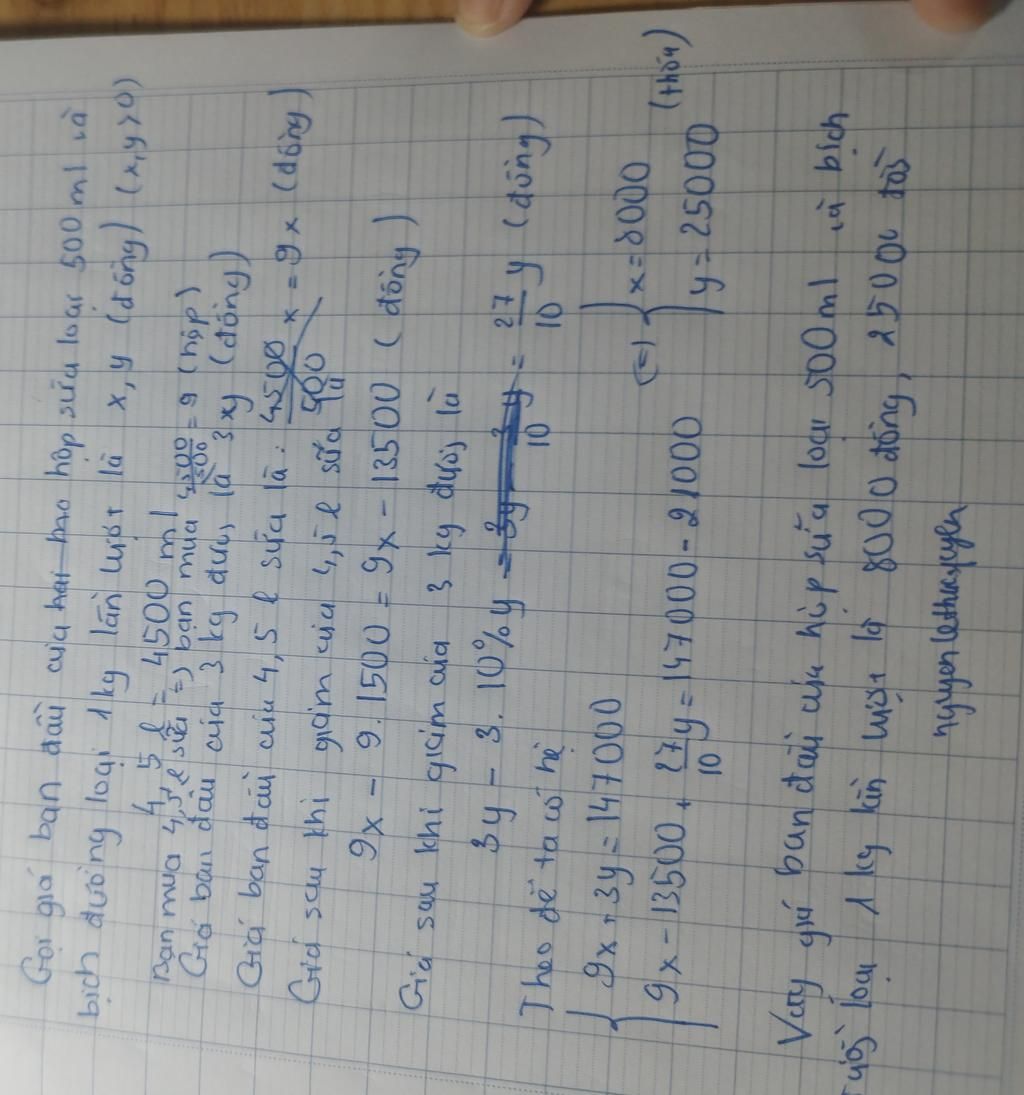 Gọi giá bạn đầu của hai bao hộp sữa loại 500 ml và
bịch đường loại 1kg lần lượt là x, y (đồng) (x,y>0)
4,5 l = 4500 ml
Bạn mua 4,5 l sữa => bạn mua 4500/500 = 9 (hộp)
Giá ban đầu của 3 kg đườn là 3 xy (đồng)
Giá ban đầu của 4,5 l sữa là: 4500/500 x = 9x (đồng)
Giá sau khi giảm của 4,5 l sữa là
9x - 9.1500 = 9x - 13500 (đồng)
Giá sau khi giảm của 3 kg đườg là
3y - 3. 10%y = 3y - 3y/10 = 27/10 y (đồng)
Theo đề ta có hệ
{ 9x + 3y = 147000
{ 9x - 13500 + 27/10 y = 147000 - 21000
(=) { x = 8000
{ y = 25000 (thỏa)
Vậy giá ban đầu của hộp sữa loại 500ml và bịch
loại 1 kg lần lượt là 8000 đồng, 25000 đồg
nguyenlethuyuyen